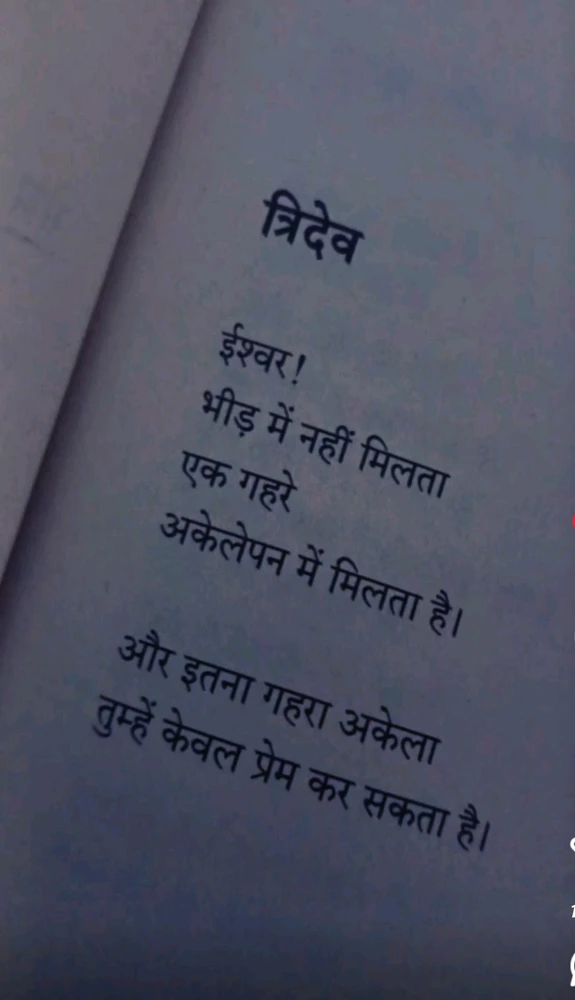 त्रिदेव
ईश्वर!
भीड़ में नहीं मिलता
एक गहरे
अकेलेपन में मिलता है।
और इतना गहरा अकेला
तुम्हें केवल प्रेम कर सकता है।